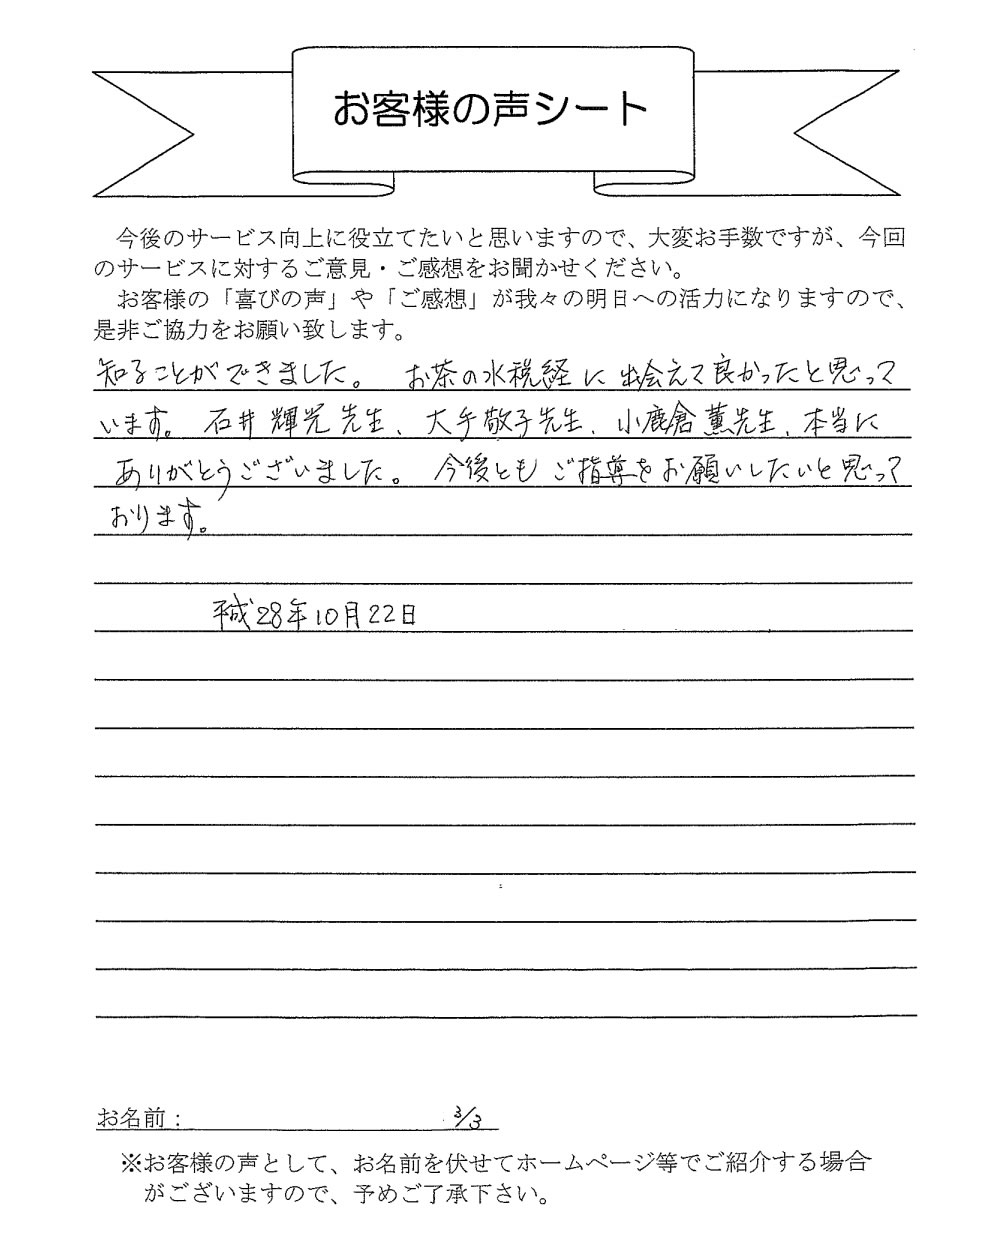 お客様の声シート
今後のサービス向上に役立てたいと思いますので、大変お手数ですが、今回
のサービスに対するご意見・ご感想をお聞かせください。
お客様の「喜びの声」や「ご感想」が我々の明日への活力になりますので、
是非ご協力をお願い致します。
知ることができました。 お茶の水税経に出会えて良かったと思って
います。石井輝光先生、大手敬子先生、小鹿倉薫先生、本当に
ありがとうございました。今後ともご指導をお願いしたいと思って
おります。
平成28年10月22日
お名前： 3/3
※お客様の声として、お名前を伏せてホームページ等でご紹介する場合
がございますので、予めご了承下さい。